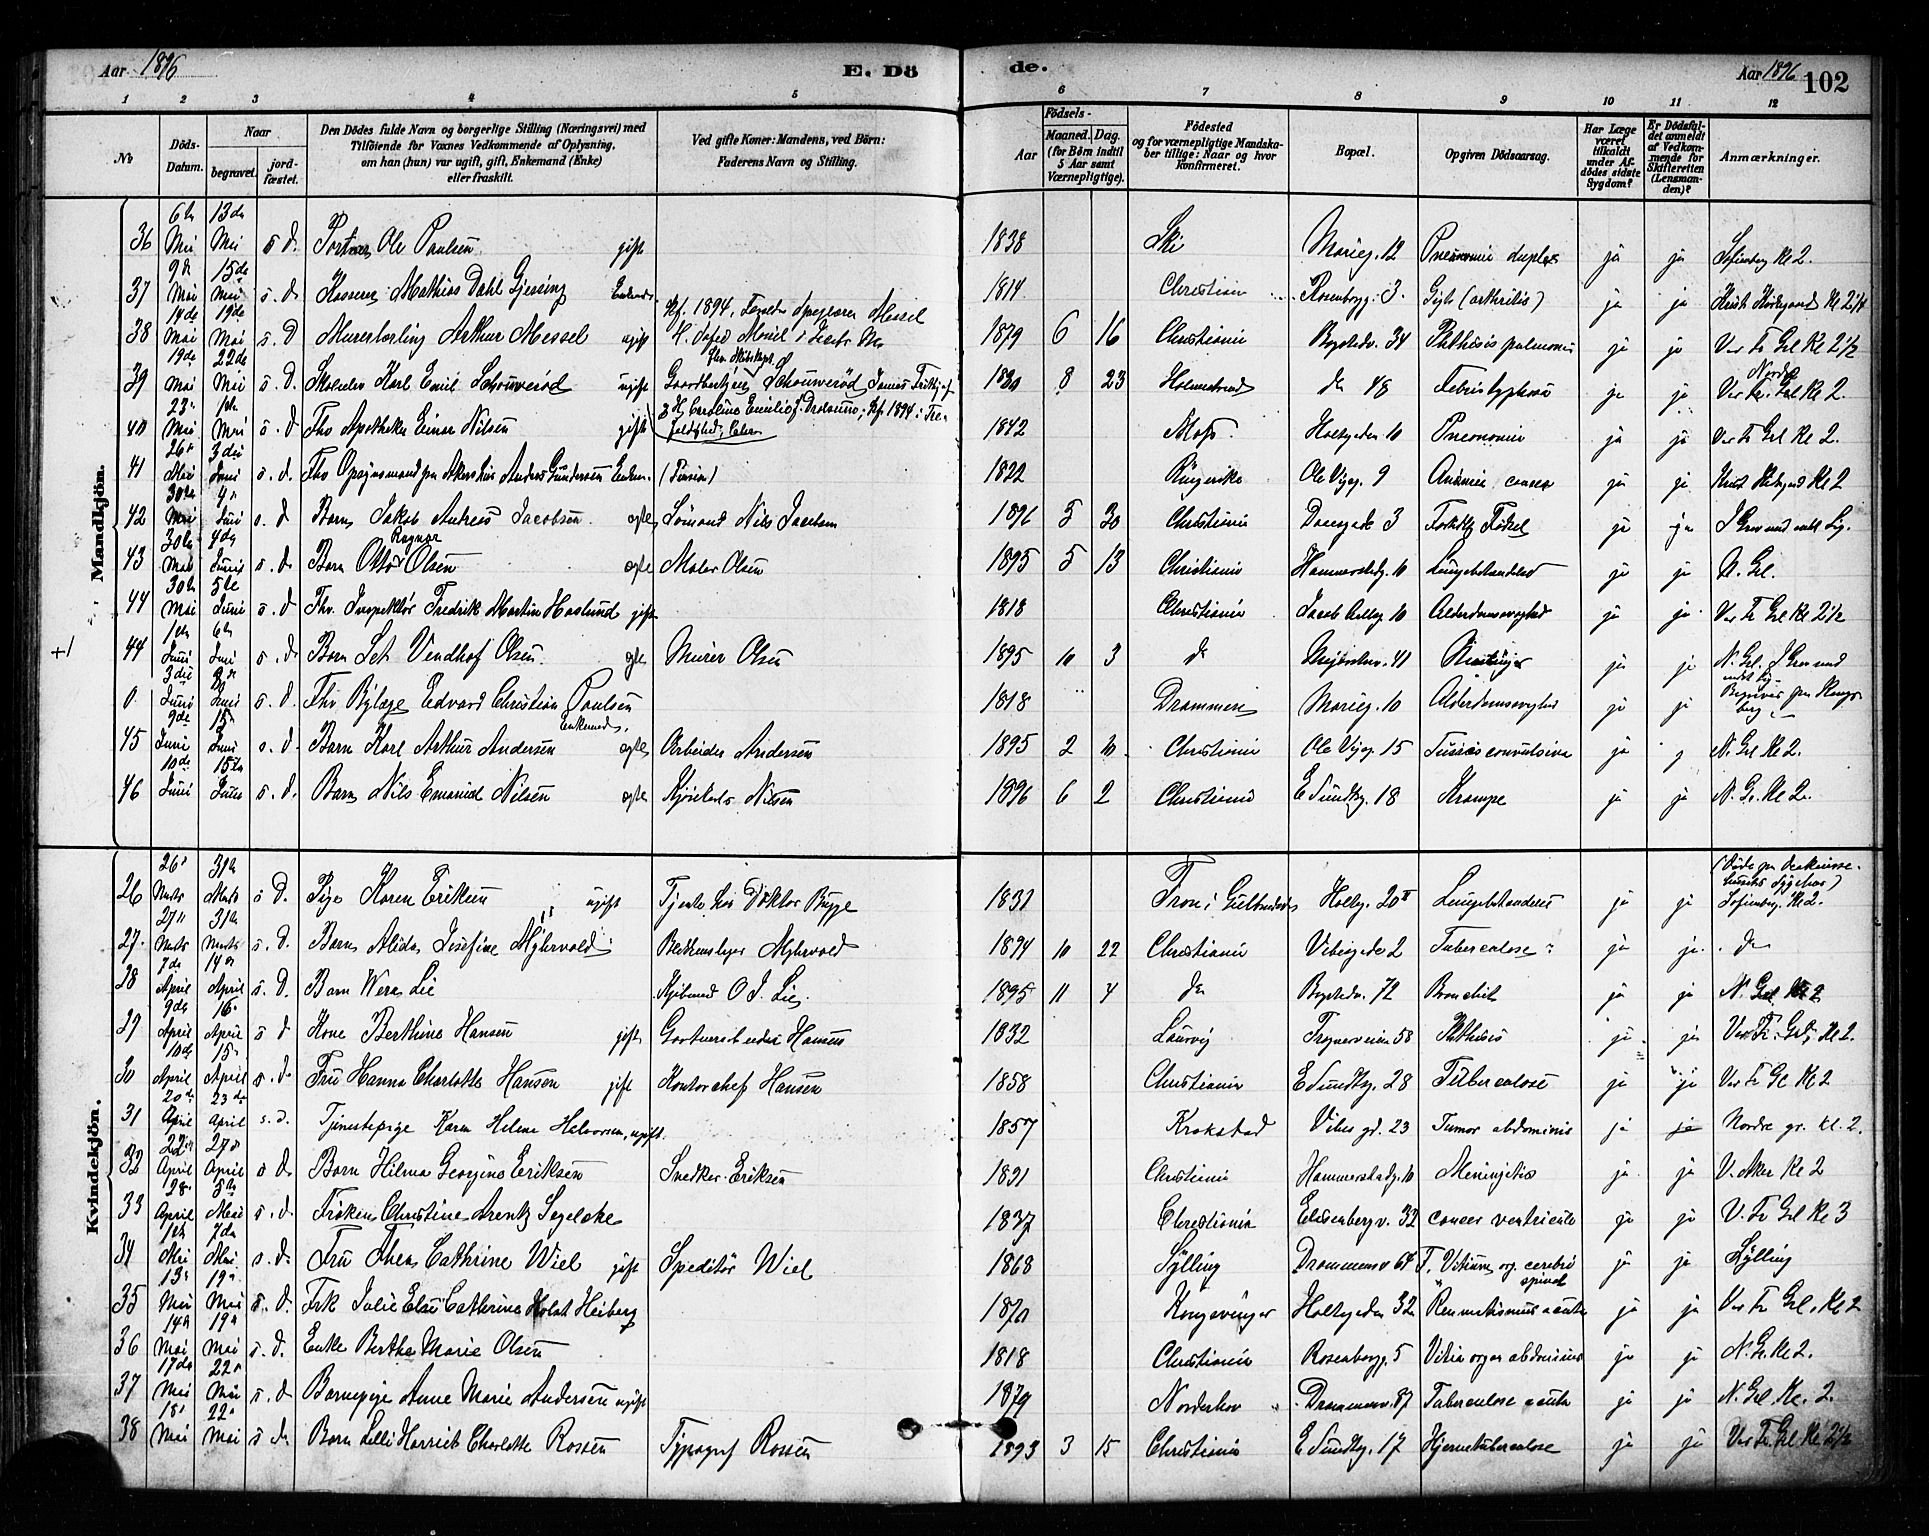 Aar 1896 E. Dö de. Aar 1896 102
1 2 3 4 5 6 7 8 9 10 11 12
No
Döds-Datum.
Naar begravet. jord-fæstet.
Den Dödes fulde Navn og borgerlige Stilling (Næringsvei) med Tilföiende for Voxnes Vedkommende af Oplysning, om han (hun) var ugift, gift, Enkemand (Enke) eller fraskilt.
Ved gifte Koner: Mandens, ved Börn: Faderens Navn og Stilling.
Födsels- Aar Maaned. Dag. (for Börn indtil 5 Aar samt Værnepligtige).
Födested og for værnepligtige Mandska-ber tillige: Naar og hvor konfirmeret.
Bopæl.
Opgiven Dödsaarsag.
Har Læge været tilkaldt under Af-dödes sidste Sygdom?
Er Dödsfal-det anmeldt af Vedkom-mende for Skifteretten (Lensman-den)?
Anmærkninger.
Mandkjön.
36 6te Mai 13de Mai s. d. Ole Paulsen gift 1838 Ski Marieg. 12 Pneumoni duplex ja ja Sofienberg Kl 2.
37 9de Mai 15de Mai s. d. Mathias Dahl Gjessing 1814 Christiania Rosenborgg. 3. Gigt (arthritis) ja ja
38 14de Mai 19de Mai s. d Murerlærling Arthur Messel ugift Kf. 1894, 1879 6 16 Christiania Bogstadv. 34 Phthisis pulmonis ja ja Vor Fr Grl Kl 2½
39 19de Mai 22de Mai s. d. Karl Emil Schouverød ugift Schouverød 8 23 Holmestrand do 48 Febris typhosa ja ja Kl 2.
40 23de Mai Mai s. d Fhv Apotheker Einar Nilsen gift 1842 Moss. Holtegaden 10 Pneumoni ja ja Vor Fr Grl Kl 2.
41 26de Mai 3die Juni s. d. Fhv Opsynsmand paa Akershus Anders Gundersen 1822 Ringerike Ole Vigsg. 9 Anæmi ja ja Kl 2
42 30te Mai 4de Juni s. d Barn Jakob Andreas Jacobsen ægte Sömand Nils Jacobsen 1896 5 30 Christiania 3 ja ja
43 30te Mai 4de Juni s. d. Barn Otto Ragnar Olsen ægte Maler Olsen 1895 5 13 Christiania Hammerstadg. 10 Lungebetændelse ja ja N. Grl.
44 30te Mai 5te Juni s. d Fhv. Inspektör Fredrik Martin Haslund gift 1818 Christiania Jacob Aallsg. 10 Alderdomssvaghed ja ja Vor Fr Grl Kl 2½
+/ 44 1ste Juni 6te Juni s. d. Barn Vendhof Olsen. ægte Murer Olsen 1895 10 3 do 41 Meningit ja ja N. Grl.
0 3die Juni Juni s. d. Fhv Edvard Christian Paulsen Enkemand. 1818 Drammen Marieg. 10 Alderdomssvaghed ja ja
45 9de Juni 15de Juni s. d. Barn Karl Arthur Andersen ægte Arbeider Andersen 1895 2 10 Christiania Ole Vigsg 15 Tussis convulsiva ja j N. Grl Kl 2.
46 10de Juni 15de Juni s. d. Barn Nils Emanuel Nilsen ægte Nilsen 1896 6 2 Christiania E Sundtsg. 18 Krampe ja ja N. Gr. Kl 2.
Kvindekjön.
26 26de Marts 31te Marts s. D. Pige Karen Eriksen ugift Tjente hos Doktor Bugge 1831 Fron i Gulbrandsd. Holteg. 20 II Lungebetændelse ja ja Sofienberg. Kl 2.
27. 27de Marts 31te Marts s. D. Barn Alida Josefine Myhrvold Blikkenslager Myhrvold 1894 10 22 Christiania Vibesgade 2 Tuberculose ja ja do
28 7de April 14de April s. D. Barn Wera Lie Kjöbmand O J. Lie. 1895 11 4 do Bogstadv. 72 Bronchit ja ja N. Grl Kl 2
29 9de April 16de April s d Kone Berthine Hansen gift Gartnerarbeider Hansen 1832 Laurvig Frognerveien 58 Phthisis ja ja Vor Fr. Grl. Kl 2.
30 10de April 15de April s. d. Fru Hanna Charlotte Hansen gift Kontorchef Hansen 1858 Christiania E Sundtsg. 28 Tuberculose ja ja Vor Fr Gr Kl 2
31 20de April 23de April s. d. Tjenestepige Karen Helene Halvorsen, ugift. 1857 Krokstad Vibes gd. 23 Tumor abdominis ja ja Nordre gr. Kl. 2.
32 22de April 27de April s d. Barn Hilma Georgine Eriksen Snedker Eriksen 1891 Christiania Hammerstadg. 10 Meningitis ja ja V. Aker Kl 2
33 28de April 5te Mai s. d. Fröken Christine Arentz Segelcke 1837 Christiania Eilisenbergv. 32 cancer ventriculi ja ja V. Fr Grl Kl 3
34 1ste Mai 7de Mai s. d. Fru Thea Cathrine Wiel gift Speditör Wiel 1868 Sylling Drammensv 64 Vitium org. cerebri spinal ja ja Sylling
35 13de Mai 19de Mai s. d. Frk Julie Elau Cathrine Holst Heiberg 1870 Kongsvinger Holtegaden 32 Reumatismus acuta ja ja Vor Fr Grl. Kl 2
36 14de Mai 19de Mai s. d. Enke Berthe Marie Olsen 1818 Christiania Rosenborgg. 5 Vitia organ abdominis ja ja N. Gr. Kl 2.
37 17de Mai 22de Mai s. d Barnepige Anne Marie Andersen ugift 1879 Norderhov Drammensv. 87 Tuberculose acuta ja ja N. Grl. Kl. 2.
38 18de Mai 22de Mai s d. Barn Lilli Harriet Charlotte Rossen Typograf Rossen 1893 3 15 Christiania E Sundtsg. 17 Hjernetuberculose ja ja Vor Fr Grl Kl 2½